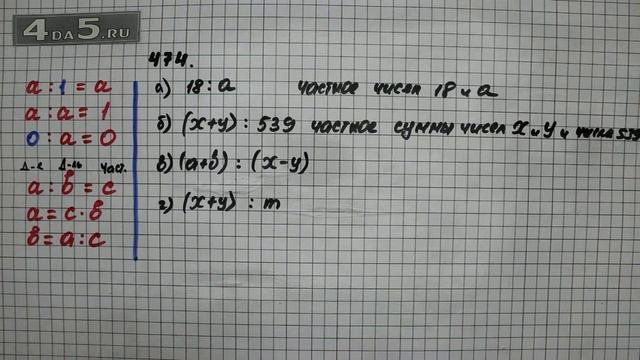 4DA5.RU
474.
a : 1 = a
a : a = 1
0 : a = 0
Д-е Д-ль част.
a : в = c
a = c · в
в = a : c
а) 18 : a частное чисел 18 и a
б) (x+y) : 539 частное суммы чисел x и y и числа 539
в) (a+в) : (x-y)
г) (x+y) : m